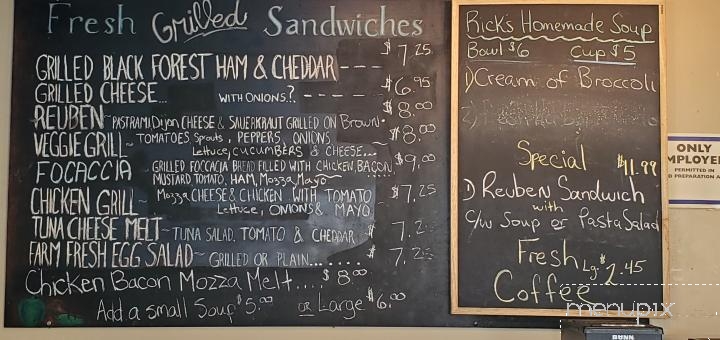 Fresh Grilled Sandwiches
GRILLED BLACK FOREST HAM & CHEDDAR --- $7.25
GRILLED CHEESE... WITH ONIONS.?. $6.95
REUBEN~ PASTRAMI, Dijon CHEESE & SAUERKRAUT GRILLED ON Brown. $8.00
VEGGIE GRILL~ TOMATOES Sprouts, PEPPERS, ONIONS $8.00
Lettuce, CUCUMBERS & CHEESE...
FOCACCIA~ GRILLED FOCCACIA BREAD FILLED WITH CHICKEN, BACON, $9.00
MUSTARD TOMATO, HAM, Mozza, Mayo
CHICKEN GRILL~ Mozza CHEESE & CHICKEN WITH TOMATO $7.25
Lettuce, ONIONS & MAYO
TUNA CHEESE MELT~ TUNA SALAD, TOMATO & CHEDDAR
FARM FRESH EGG SALAD~ GRILLED OR PLAIN....... 7.25
Chicken Bacon Mozza Melt.... $8.00
Add a small Soup $5.00 or Large $6.00
Rick's Homemade Soup
Bowl $6 Cup $5
1) Cream of Broccoli
2)
Special $11.99
1) Reuben Sandwich
with
C/W Soup or Pasta Salad
Fresh Lg. $2.45
Coffee
ONLY
MPLOYEE
PERMITTED IN
PREPARATION A
menupix